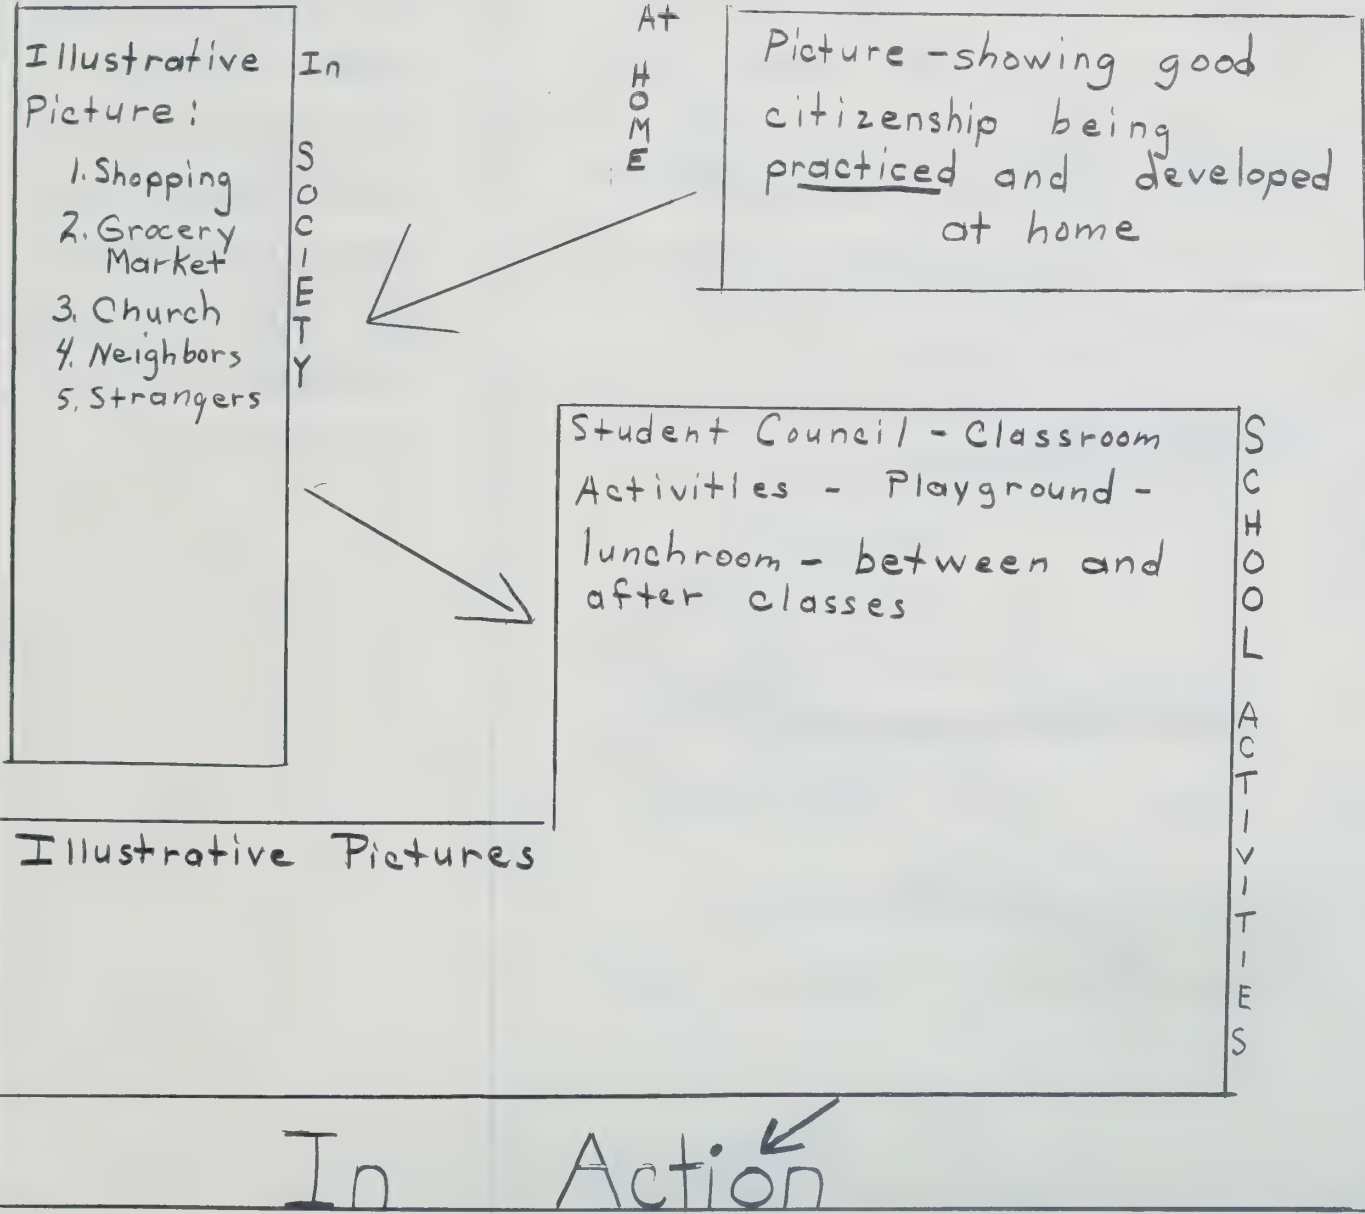 Illustrative
Picture:
1. Shopping
2. Grocery
Market
3. Church
4. Neighbors
5. Strangers
In
SOCIETY
At
HOME
Picture - showing good
citizenship being
practiced and developed
at home
Student Council - Classroom
Activities - Playground -
lunchroom - between and
after classes
SCHOOL ACTIVITIES
Illustrative Pictures
In Action